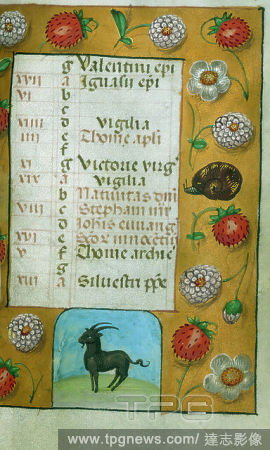 g Valentini epi
xvii a Ignasij epi
vi b
c
xiiii d Vigilia
iii e Thome apli
f
xi g Victorie virg
xix a Vigilia
b Nativitas dni
viii c Stephani mr
d Johis euang
xvi e Scor innocetu
v f Thome archie
g
xiii a Silvestri ppe
TPG
www.tpgnews.com/ 達志影像